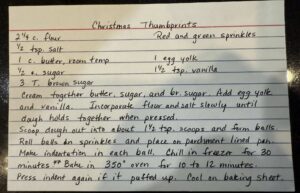 Christmas Thumbprints
2 1/4 c. flour Red and green sprinkles
1/2 tsp. salt
1 c. butter, room temp 1 egg yolk
1/2 c. sugar 1 1/2 tsp. vanilla
3 T. brown sugar
Cream together butter, sugar, and br. sugar. Add egg yolk
and vanilla. Incorporate flour and salt slowly until
dough holds together when pressed.
Scoop dough out into about 1 1/2 tsp. scoops and form balls.
Roll balls in sprinkles and place on parchment lined pan.
Make indentation in each ball. Chill in freezer for 30
minutes ** Bake in 350° oven for 10 to 12 minutes.
Press indent again if it puffed up. Cool on baking sheet.